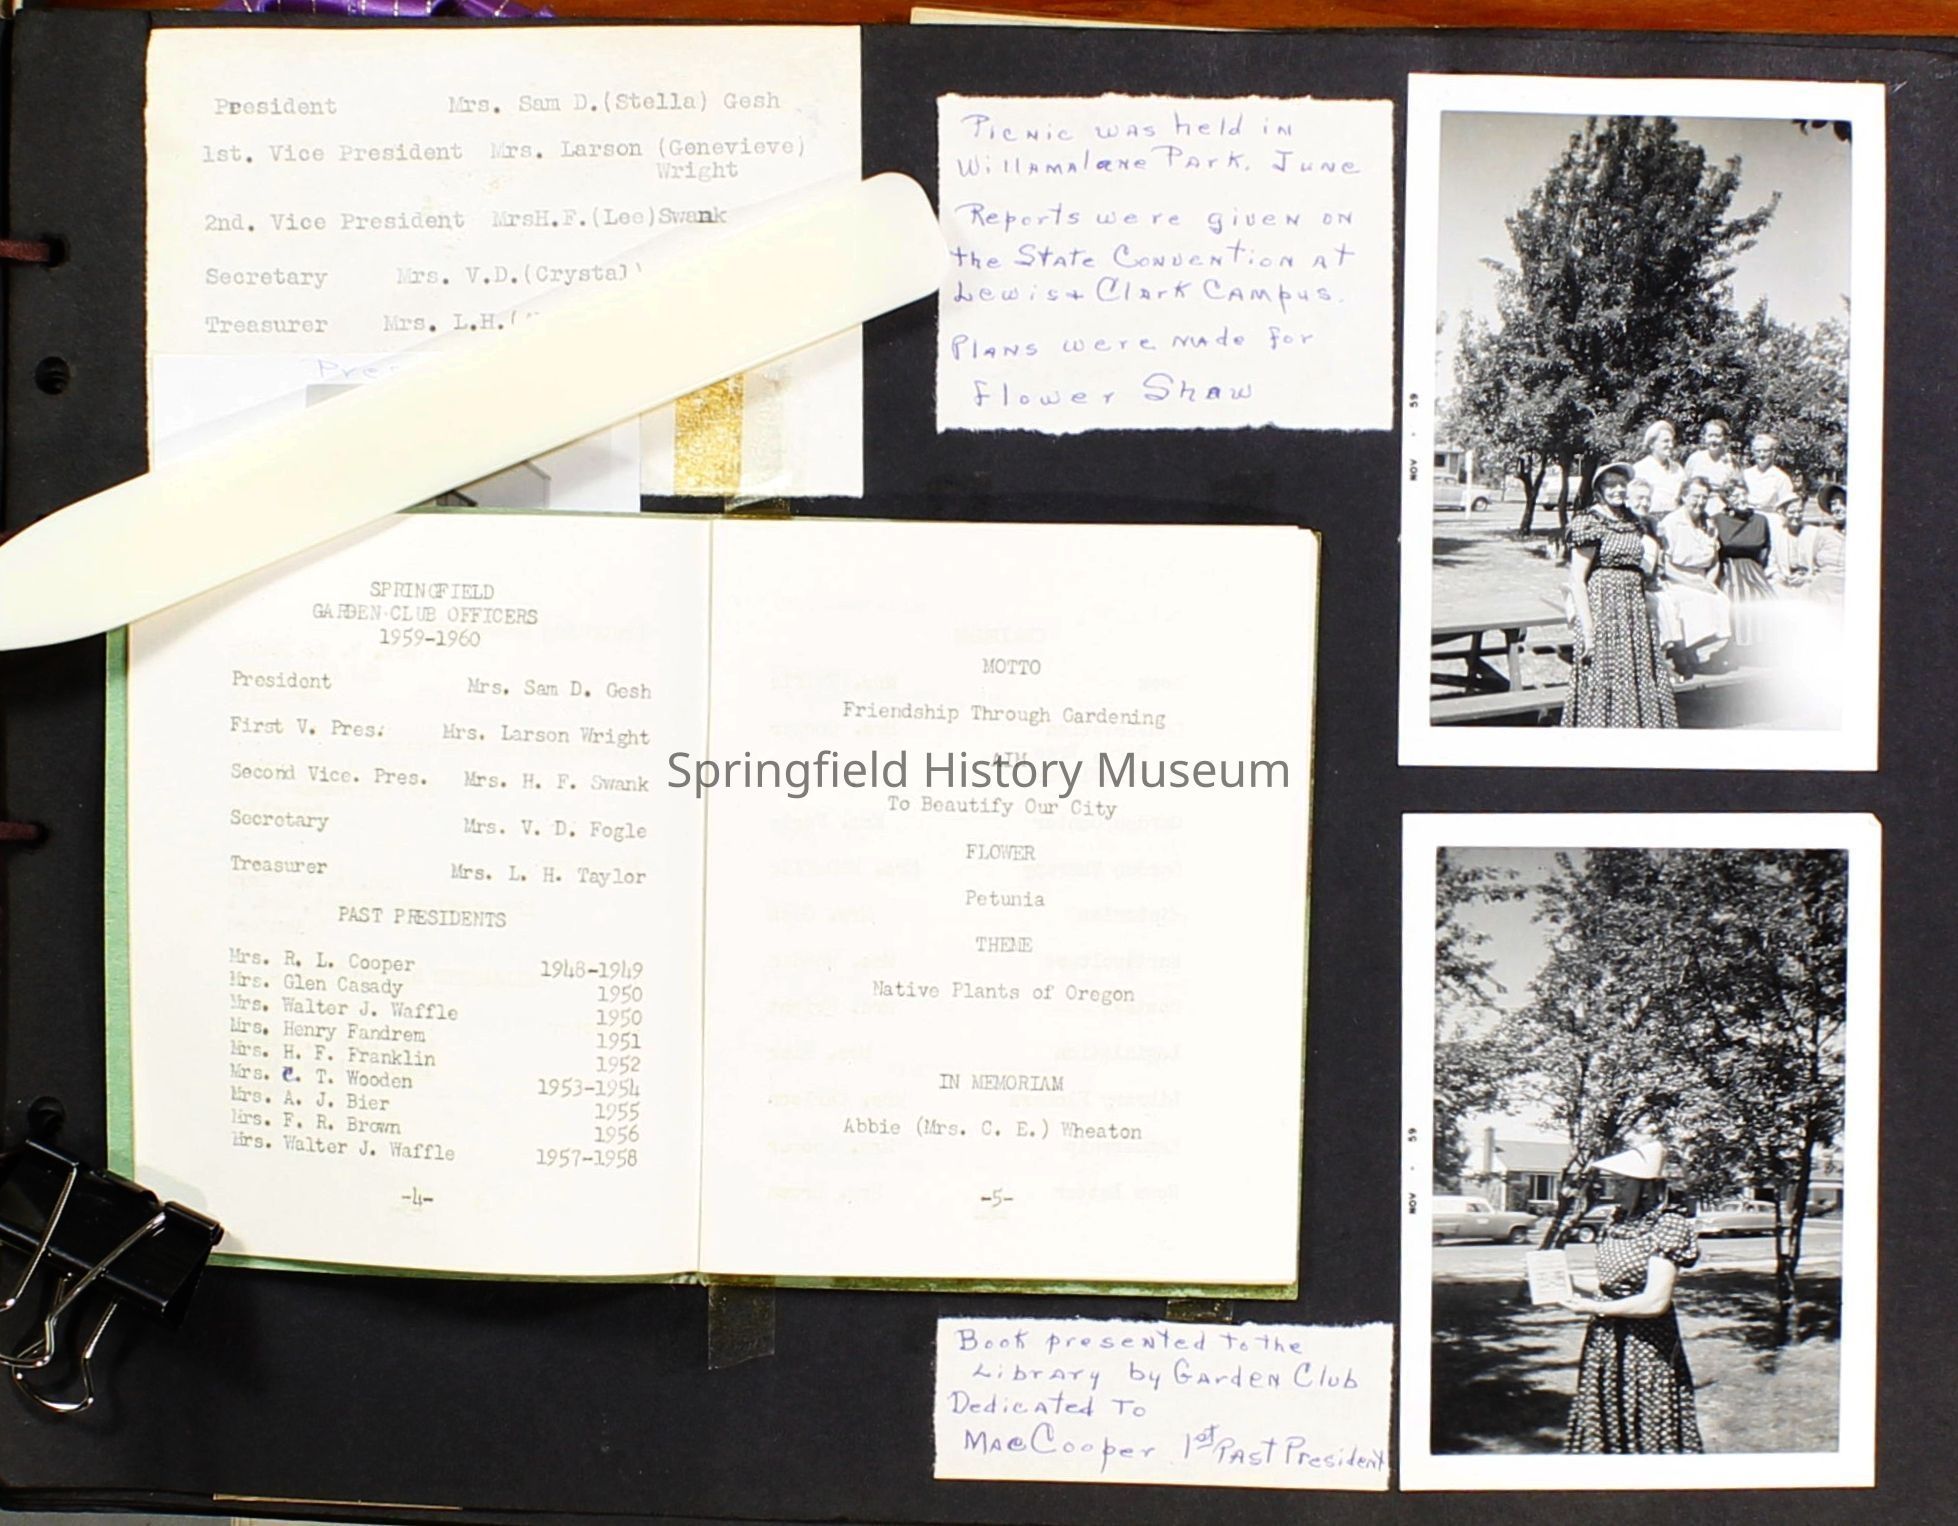 President Mrs. Sam D.(Stella) Gesh
1st. Vice President Mrs. Larson (Genevieve)
Wright
2nd. Vice President MrsH.F.(Lee)Swank
Secretary Mrs. V.D.(Crystal)
Treasurer Mrs. L.H.(
Picnic was held in
Willamalane Park. June
Reports were given on
the State Convention at
Lewis + Clark Campus.
Plans were made for
Flower Show
SPRINGFIELD
GARDEN CLUB OFFICERS
1959-1960
President Mrs. Sam D. Gesh
First V. Pres. Mrs. Larson Wright
Second Vice. Pres. Mrs. H. F. Swank
Secretary Mrs. V. D. Fogle
Treasurer Mrs. L. H. Taylor
PAST PRESIDENTS
Mrs. R. L. Cooper 1948-1949
Mrs. Glen Casady 1950
Mrs. Walter J. Waffle 1950
Mrs. Henry Fandrem 1951
Mrs. H. F. Franklin 1952
Mrs. C. T. Wooden 1953-1954
Mrs. A. J. Bier 1955
Mrs. F. R. Brown 1956
Mrs. Walter J. Waffle 1957-1958
-4-
MOTTO
Friendship Through Gardening
AIM
To Beautify Our City
FLOWER
Petunia
THEME
Native Plants of Oregon
IN MEMORIAM
Abbie (Mrs. C. E.) Wheaton
-5-
Springfield History Museum
NOV · 59
NOV · 59
Book presented to the
Library by Garden Club
Dedicated To
Mae Cooper 1st Past President